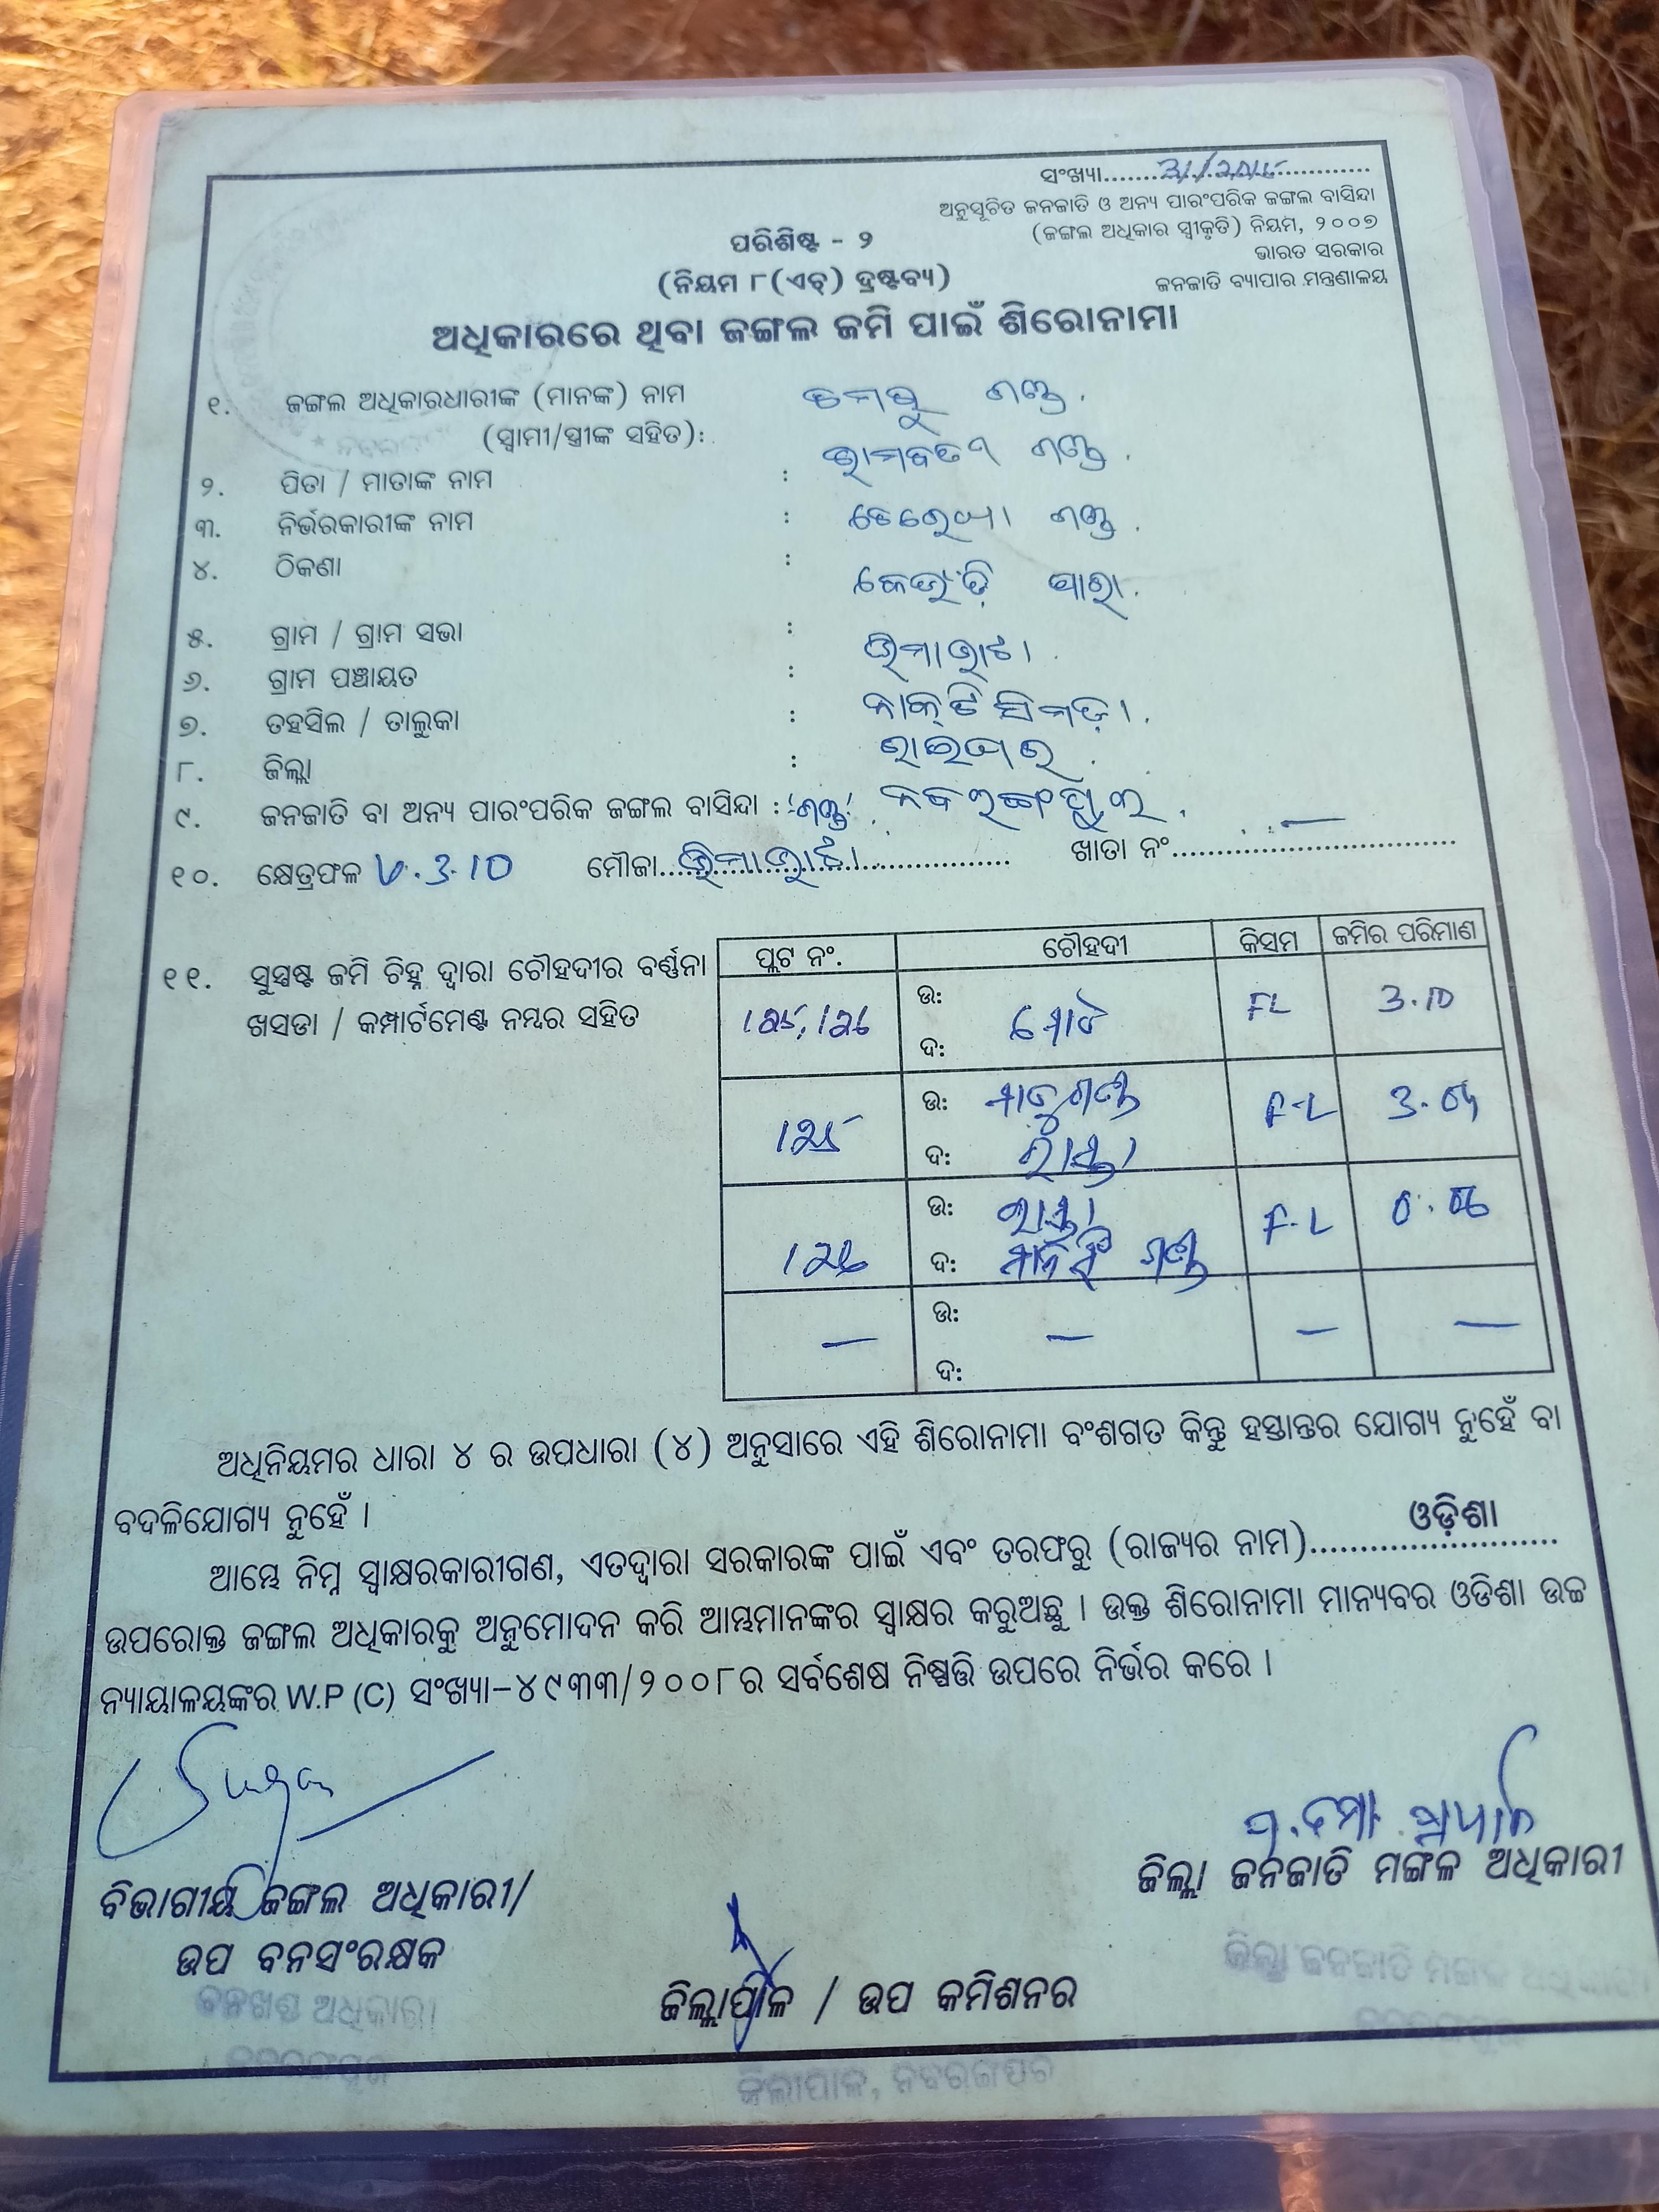 ସଂଖ୍ୟା.......31/.......................
ଅନୁସୂଚିତ ଜନଜାତି ଓ ଅନ୍ୟ ପାରଂପରିକ ଜଙ୍ଗଲ ବାସିନ୍ଦା
(ଜଙ୍ଗଲ ଅଧିକାର ସ୍ୱୀକୃତି) ନିୟମ, ୨୦୦୭
ଭାରତ ସରକାର
ଜନଜାତି ବ୍ୟାପାର ମନ୍ତ୍ରଣାଳୟ
ପରିଶିଷ୍ଟ - ୨
(ନିୟମ ୮(ଏଚ୍) ଦ୍ରଷ୍ଟବ୍ୟ)
ଅଧିକାରରେ ଥିବା ଜଙ୍ଗଲ ଜମି ପାଇଁ ଶିରୋନାମା
୧. ଜଙ୍ଗଲ ଅଧିକାରଧାରୀଙ୍କ (ମାନଙ୍କ) ନାମ ଗଣ୍ଡ
(ସ୍ୱାମୀ/ସ୍ତ୍ରୀଙ୍କ ସହିତ):
୨. ପିତା / ମାତାଙ୍କ ନାମ : ଗଣ୍ଡ
୩. ନିର୍ଭରକାରୀଙ୍କ ନାମ : ଗଣ୍ଡ
୪. ଠିକଣା : ପାରା
୫. ଗ୍ରାମ / ଗ୍ରାମ ସଭା :
୬. ଗ୍ରାମ ପଞ୍ଚାୟତ :
୭. ତହସିଲ / ତାଲୁକା : ରାଇଘର
୮. ଜିଲ୍ଲା : ନବରଙ୍ଗପୁର
୯. ଜନଜାତି ବା ଅନ୍ୟ ପାରଂପରିକ ଜଙ୍ଗଲ ବାସିନ୍ଦା : 'ଗଣ୍ଡ'
୧୦. କ୍ଷେତ୍ରଫଳ 3.10 ମୌଜା............ ଖାତା ନଂ............
୧୧. ସୁସ୍ପଷ୍ଟ ଜମି ଚିହ୍ନ ଦ୍ୱାରା ଚୌହଦୀର ବର୍ଣ୍ଣନା
ଖସଡା / କମ୍ପାର୍ଟମେଣ୍ଟ ନମ୍ବର ସହିତ
ପ୍ଲଟ ନଂ. ଚୌହଦୀ କିସମ ଜମିର ପରିମାଣ
ଉ: ମୋଟ FL 3.10
ଦ:
ଉ: ଗଣ୍ଡ F-L
ଦ: ରାସ୍ତା
ଉ: ରାସ୍ତା F.L
ଦ: ଗଣ୍ଡ
— ଉ: — — —
ଦ:
ଅଧିନିୟମର ଧାରା ୪ ର ଉପଧାରା (୪) ଅନୁସାରେ ଏହି ଶିରୋନାମା ବଂଶଗତ କିନ୍ତୁ ହସ୍ତାନ୍ତର ଯୋଗ୍ୟ ନୁହେଁ ବା
ବଦଳିଯୋଗ୍ୟ ନୁହେଁ ।
ଆମ୍ଭେ ନିମ୍ନ ସ୍ୱାକ୍ଷରକାରୀଗଣ, ଏତଦ୍ୱାରା ସରକାରଙ୍କ ପାଇଁ ଏବଂ ତରଫରୁ (ରାଜ୍ୟର ନାମ)......ଓଡ଼ିଶା......
ଉପରୋକ୍ତ ଜଙ୍ଗଲ ଅଧିକାରକୁ ଅନୁମୋଦନ କରି ଆମ୍ଭମାନଙ୍କର ସ୍ୱାକ୍ଷର କରୁଅଛୁ । ଉକ୍ତ ଶିରୋନାମା ମାନ୍ୟବର ଓଡିଶା ଉଚ୍ଚ
ନ୍ୟାୟାଳୟଙ୍କର W.P (C) ସଂଖ୍ୟା-୪୯୩୩/୨୦୦୮ର ସର୍ବଶେଷ ନିଷ୍ପତ୍ତି ଉପରେ ନିର୍ଭର କରେ ।
ବିଭାଗୀୟ ଜଙ୍ଗଲ ଅଧିକାରୀ/
ଉପ ବନସଂରକ୍ଷକ
ଜିଲ୍ଲାପାଳ / ଉପ କମିଶନର
ଜିଲ୍ଲା ଜନଜାତି ମଙ୍ଗଳ ଅଧିକାରୀ
ବନଖଣ୍ଡ ଅଧିକାରୀ
ଜିଲ୍ଲାପାଳ, ନବରଙ୍ଗପୁର
ଜିଲ୍ଲା ଜନଜାତି ମଙ୍ଗଳ ଅଧିକାରୀ